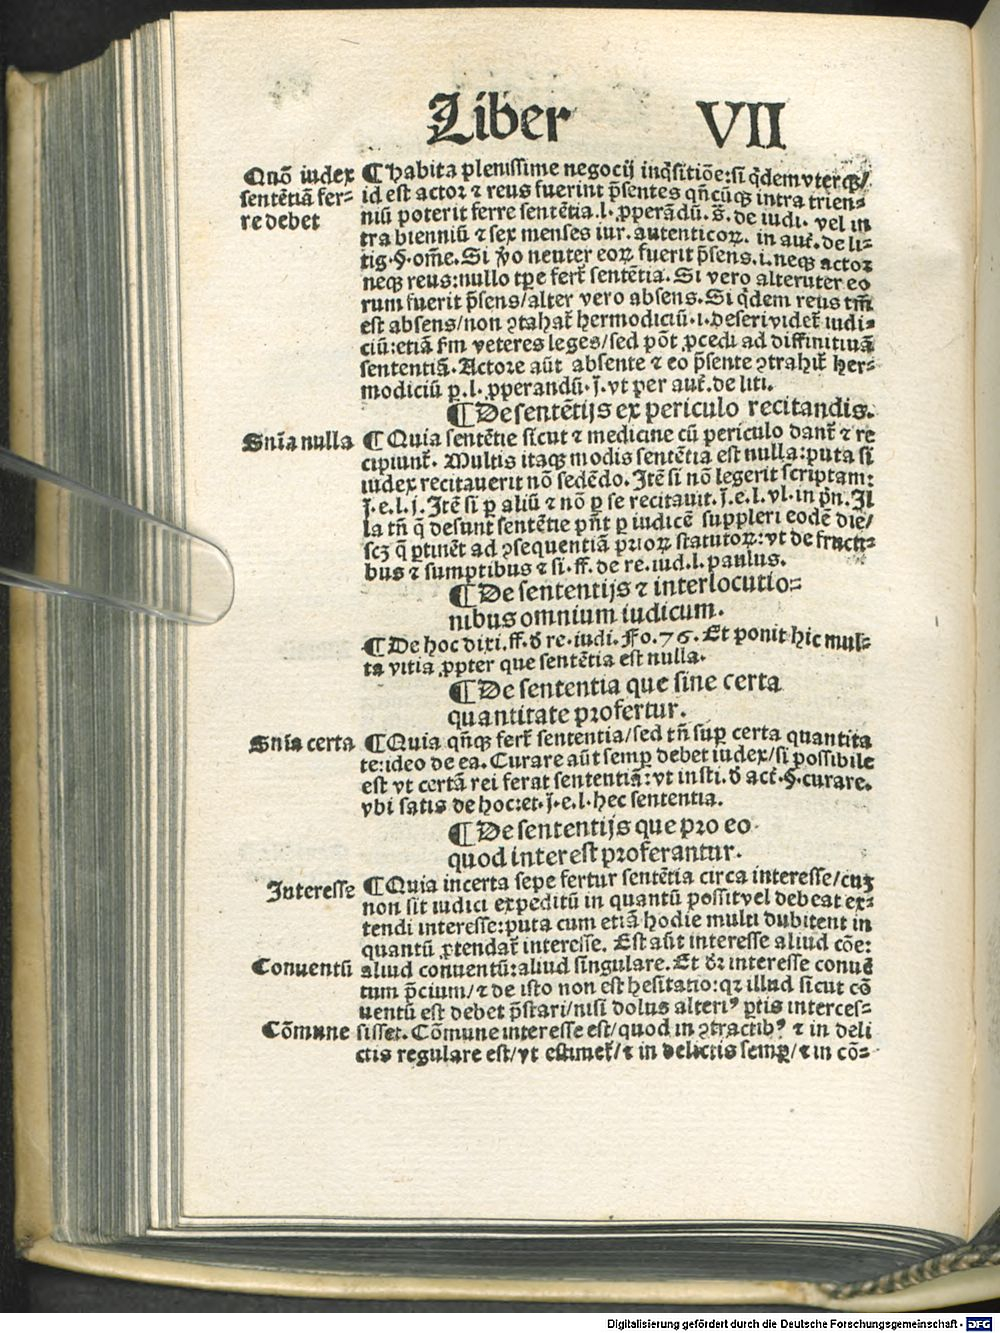 Liber VII
Quō iudex
sentētiā fer-
re debet
¶ Habita plenissime negocij inq̄sitiōe: si q̄dem vterqꝫ/
id est actor ⁊ reus fuerint p̄sentes qn̄cūqꝫ intra trien-
niū poterit ferre sentētia. l. ꝓperādū. s̄. de iudi. vel in
tra bienniū ⁊ sex menses iur. autenticoꝝ. in aut̄. de li-
tig. §. om̄e. Si ꝟo neuter eoꝝ fuerit p̄sens. i. neqꝫ actor
neqꝫ reus: nullo tꝑe fert̄ sentētia. Si vero alteruter eo
rum fuerit p̄sens/alter vero absens. Si q̄dem reus tm̄
est absens/non ꝯtahat̄ hermodiciū. i. deseri videt̄ iudi-
ciū: etiā s̄m veteres leges/sed pōt ꝓcedi ad diffinitiuā
sententiā. Actore aūt absente ⁊ eo p̄sente ꝯtrahit̄ her-
modiciū ꝑ. l. ꝓperandū. j̄. vt per aut̄. de liti.
¶ De sentētijs ex periculo recitandis.
Snīa nulla
¶ Quia sentētie sicut ⁊ medicine cū periculo dant̄ ⁊ re
cipiunt̄. Multis itaqꝫ modis sentētia est nulla: puta si
iudex recitauerit nō sedēdo. Itē si nō legerit scriptam:
j̄. e. l. j. Itē si ꝑ aliū ⁊ nō ꝑ se recitauit. j̄. e. l. vl. in pn̄. Il
la tn̄ q̄ desunt sentētie pn̄t ꝑ iudicē suppleri eodē die/
scꝫ q̄ ꝑtinēt ad ꝯsequentiā prioꝝ statutoꝝ: vt de fructi-
bus ⁊ sumptibus ⁊ si. ff. de re. iud. l. paulus.
¶ De sententijs ⁊ interlocutio-
nibus omnium iudicum.
¶ De hoc dixi. ff. đ re. iudi. Fo. 76. Et ponit hic mul-
ta vitia ꝓpter que sentētia est nulla.
¶ De sententia que sine certa
quantitate profertur.
Snīa certa
¶ Quia qn̄qꝫ fert̄ sententia/sed tn̄ suꝑ certa quantita
te: ideo de ea. Curare aūt semꝑ debet iudex/si possibile
est vt certā rei ferat sententiā: vt insti. đ act̄. §. curare.
vbi satis de hoc: et. j̄. e. l. hec sententia.
¶ De sententijs que pro eo
quod interest proferantur.
Interesse
¶ Quia incerta sepe fertur sentētia circa interesse/cuꝫ
non sit iudici expeditū in quantū possit vel debeat ex-
tendi interesse: puta cum etiā hodie multi dubitent in
quantū ꝓtendat̄ interesse. Est aūt interesse aliud cōe:
Conuentū
aliud conuentū: aliud singulare. Et dr̄ interesse conuē
tum p̄cium/⁊ de isto non est hesitatio: qꝛ illud sicut cō
uentū est debet p̄stari/nisi dolus alteriꝰ ꝑtis interces-
Cōmune
sisset. Cōmune interesse est/quod in ꝯtractibꝰ ⁊ in deli
ctis regulare est/vt estimet̄/⁊ in delictis semꝑ/⁊ in cō-
Digitalisierung gefördert durch die Deutsche Forschungsgemeinschaft - DFG